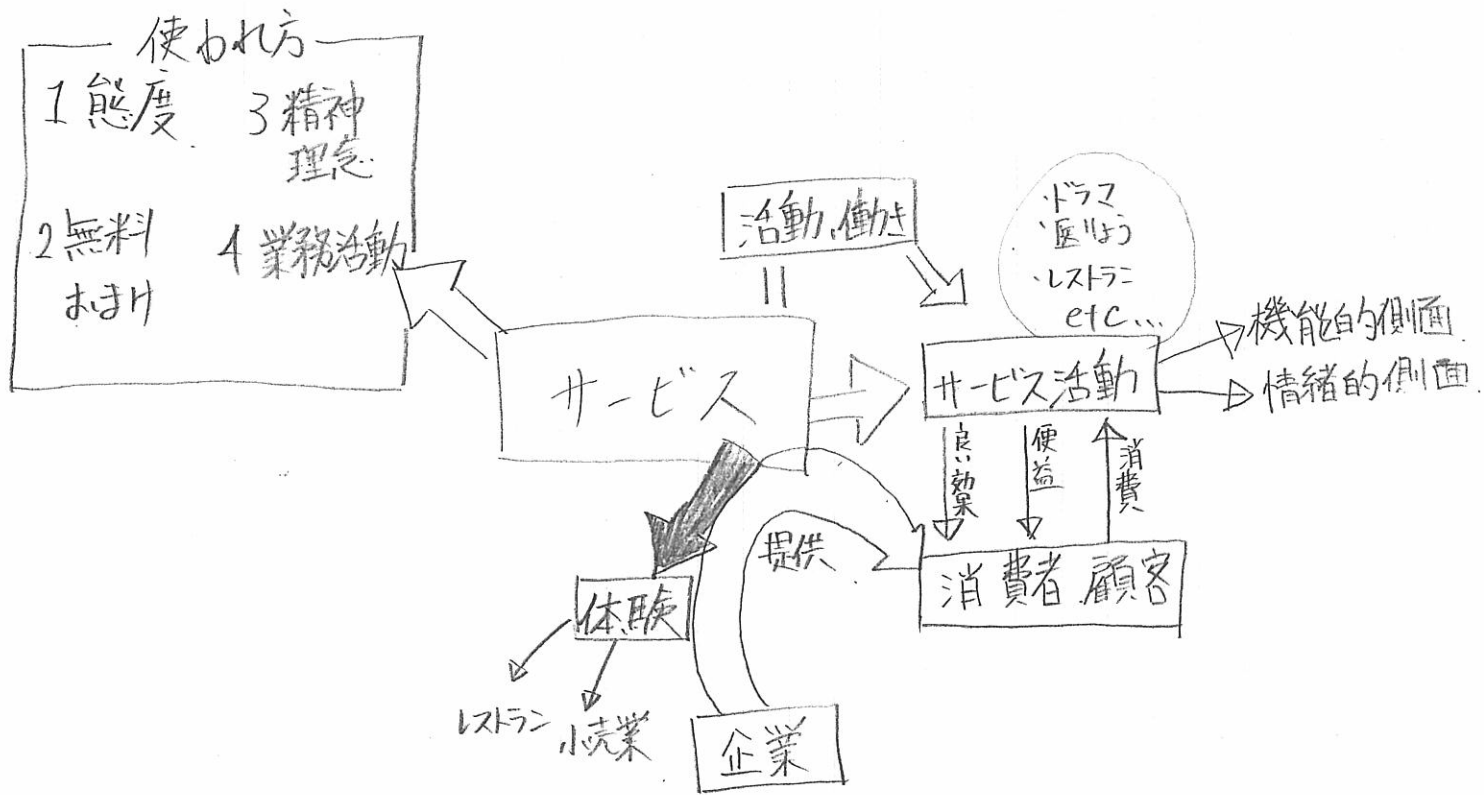 使われ方
1 態度
3 精神
理念
2 無料
おまけ
4 業務活動
活動、働き
・ドラマ
・医りょう
・レストラン
etc...
サービス
サービス活動
機能的側面
情緒的側面
良い効果
便益
消費
提供
消費者 顧客
体験
レストラン
小売業
企業